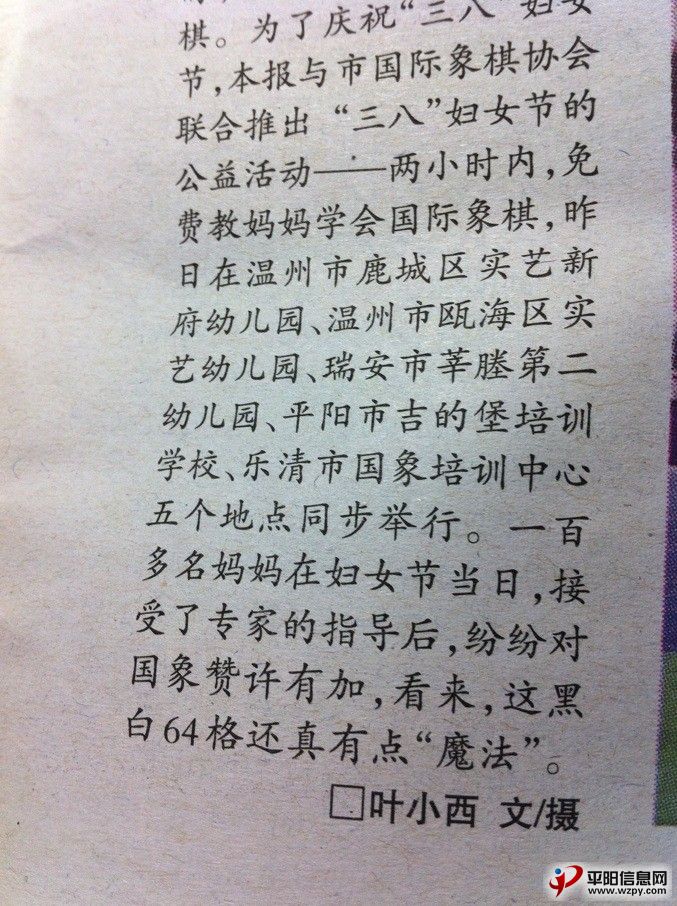 棋。为了庆祝“三八”妇女
节,本报与市国际象棋协会
联合推出 “三八”妇女节的
公益活动——两小时内,免
费教妈妈学会国际象棋,昨
日在温州市鹿城区实艺新
府幼儿园、温州市瓯海区实
艺幼儿园、瑞安市莘塍第二
幼儿园、平阳市吉的堡培训
学校、乐清市国象培训中心
五个地点同步举行。一百
多名妈妈在妇女节当日,接
受了专家的指导后,纷纷对
国象赞许有加,看来,这黑
白64格还真有点“魔法”。
□叶小西 文/摄
平阳信息网
www.wzpy.com